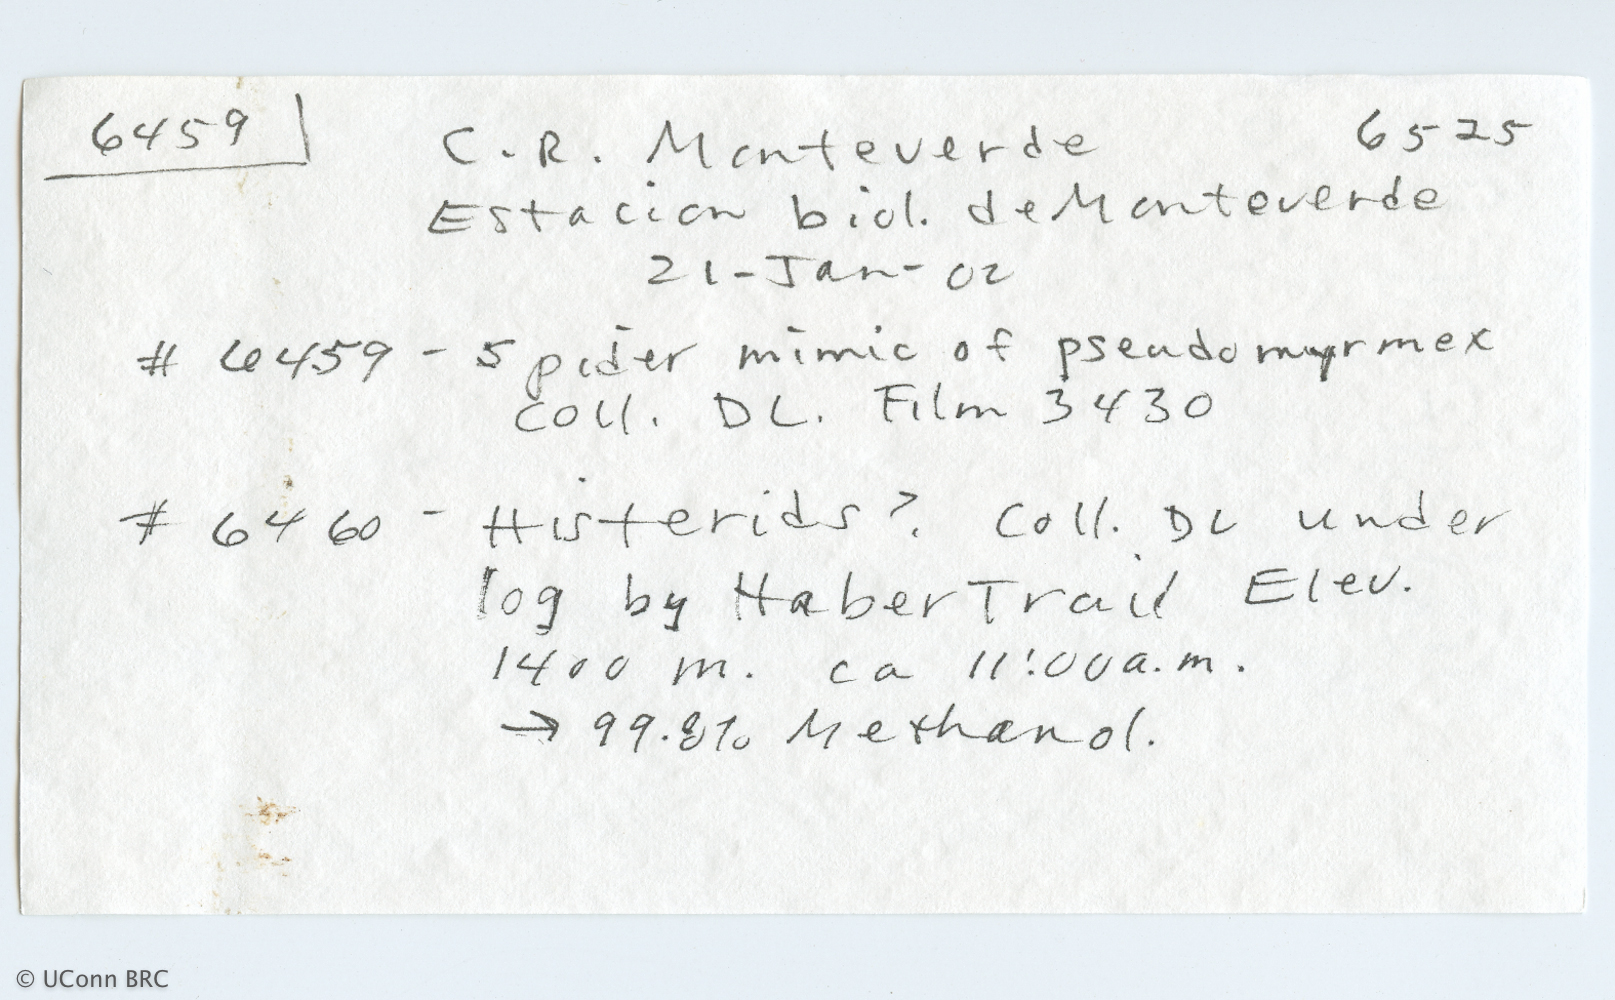 6459
C.R. Monteverde 6525
Estacion biol. de Monteverde
21-Jan-02
# 6459 - Spider mimic of pseudomyrmex
coll. DL. Film 3430
# 6460 - Histerids? Coll. DL under
log by Haber Trail Elev.
1400 m. ca 11:00 a.m.
→ 99.8% Methanol.
© UConn BRC